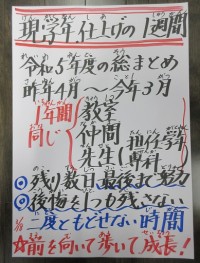 現学年仕上げの1週間
令和5年度の総まとめ
昨年4月〜今年3月
1年間 教室
同じ 仲間
先生 担任 学年 専科
◎残り数日最後まで努力
◎後悔を1つも残さない
二度ともどせない時間
☆前を向いて歩いて成長！